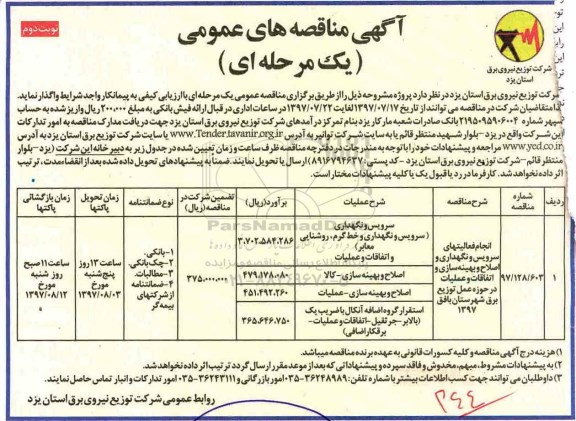 نوبت دوم
آگهی مناقصه های عمومی
(یک مرحله ای)
شرکت توزیع نیروی برق
استان یزد
شرکت توزیع نیروی برق استان یزد در نظر دارد پروژه مشروحه ذیل را از طریق برگزاری مناقصه عمومی یک مرحله ای با ارزیابی کیفی به پیمانکار واجد شرایط واگذار نماید.
لذا متقاضیان شرکت در مناقصه می توانند از تاریخ ۱۳۹۷/۰۷/۱۷ لغایت ۱۳۹۷/۰۷/۲۲ در ساعات اداری در قبال ارائه فیش بانکی به مبلغ ۲۰۰,۰۰۰ ریال واریز شده به حساب
سپهر شماره ۲۱۹۵۰۹۵۹۰۶۰۰۴ بانک صادرات شعبه مارکار یزد بنام تمرکز درآمدهای شرکت توزیع برق استان یزد جهت دریافت مدارک مناقصه به امور تدارکات
این شرکت واقع در یزد - بلوار شهید منتظر قائم یا به سایت شرکت توانیر به آدرس www.Tender.tavanir.org.ir یا سایت شرکت توزیع برق استان یزد به آدرس
www.yed.co.ir مراجعه و پیشنهادات خود را با توجه به مندرجات دفترچه مناقصه ظرف ساعت و زمان تعیین شده در جدول زیر به دبیر خانه این شرکت (یزد - بلوار
منتظر قائم - شرکت توزیع نیروی برق استان یزد - کد پستی: ۸۹۱۶۷۹۴۶۳۷) ارسال یا تحویل نمایند. ضمنا به پیشنهادهای تحویل داده شده بعد از انقضاء مدت، ترتیب
اثر داده نخواهد شد. کارفرما در رد یا قبول یک یا کلیه پیشنهادات مختار است.
ردیف | شماره مناقصه | شرح مناقصه | شرح عملیات | برآورد (ریال) | تضمین شرکت در مناقصه (ریال) | نوع ضمانتنامه | زمان تحویل پاکتها | زمان بازگشائی پاکتها
۱ | ۹۷/۱۲۸/۶۰۳ | انجام فعالیتهای سرویس و نگهداری و اصلاح و بهینه سازی و اتفاقات و عملیات در حوزه عمل توزیع برق شهرستان بافق ۱۳۹۷
سرویس و نگهداری (سرویس و نگهداری و خط گرم، روشنایی معابر) و اتفاقات و عملیات | ۳,۷۰۲,۵۸۴,۲۸۶
اصلاح و بهینه سازی - کالا | ۴۷۹,۱۷۸,۰۸۰
اصلاح و بهینه سازی - عملیات | ۴۵۱,۴۹۲,۲۶۰
استقرار گروه اضافه آنکال با ضریب یک (بالابر - جرثقیل - اتفاقات و عملیات - برقکار اضافی) | ۳۶۵,۶۴۶,۷۵۰
۳۷۵,۰۰۰,۰۰۰
۱- بانکی.
۲- چک بانکی.
۳- مطالبات.
۴- ضمانتنامه از شرکتهای بیمه گر
ساعت ۱۳ روز پنج شنبه مورخ ۱۳۹۷/۰۸/۰۳
ساعت ۱۱ صبح روز شنبه مورخ ۱۳۹۷/۰۸/۱۲
۱) هزینه درج آگهی مناقصه و کلیه کسورات قانونی به عهده برنده مناقصه میباشد.
۲) به پیشنهادات مشروط، مبهم، مخدوش و فاقد سپرده و پیشنهاداتی که بعد از موعد مقرر ارسال گردد ترتیب اثر داده نخواهد شد.
۳) داوطلبان می توانند جهت کسب اطلاعات بیشتر با شماره تلفن: ۳۶۲۴۸۹۸۹-۰۳۵ امور بازرگانی و ۳۶۲۴۳۱۱۱-۰۳۵ امور تدارکات و انبار تماس حاصل نمایند.
روابط عمومی شرکت توزیع نیروی برق استان یزد